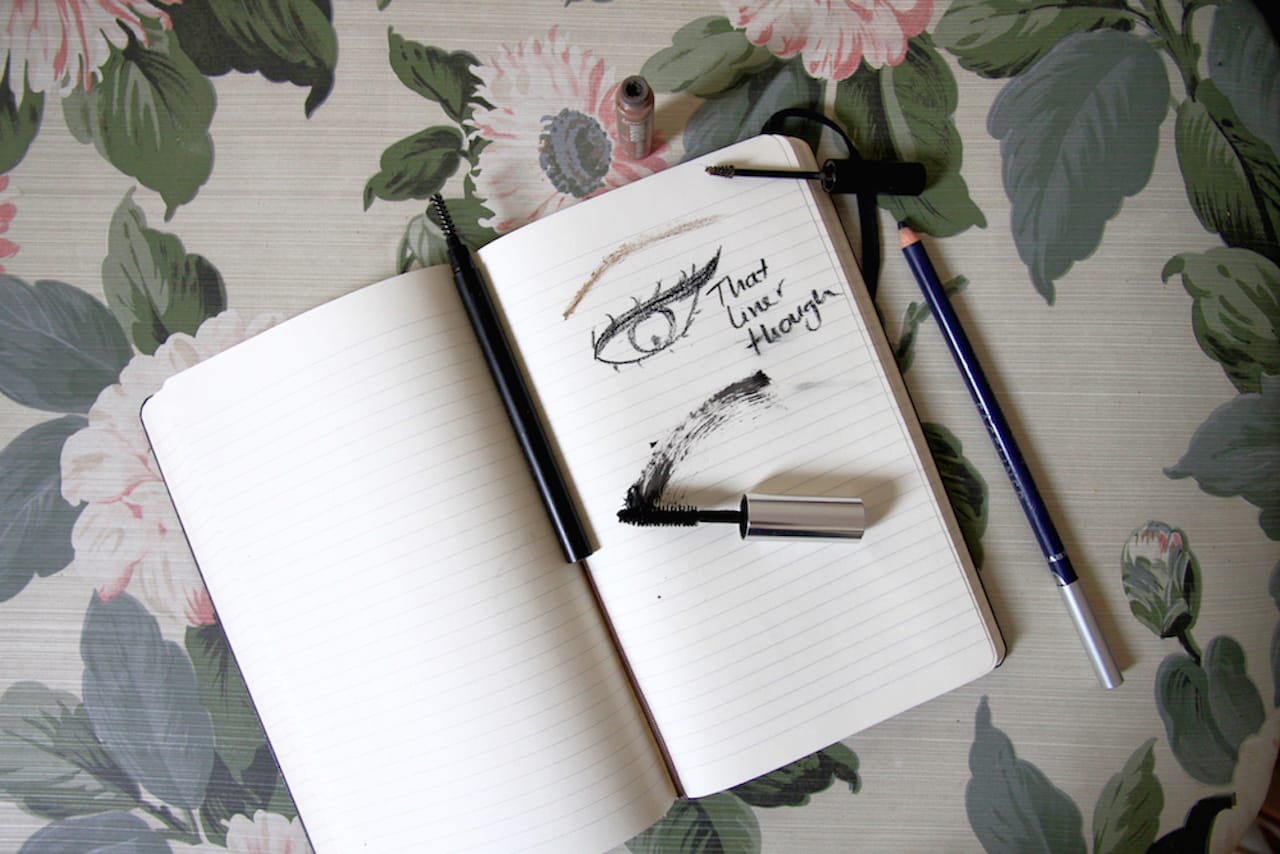 That
liner
though